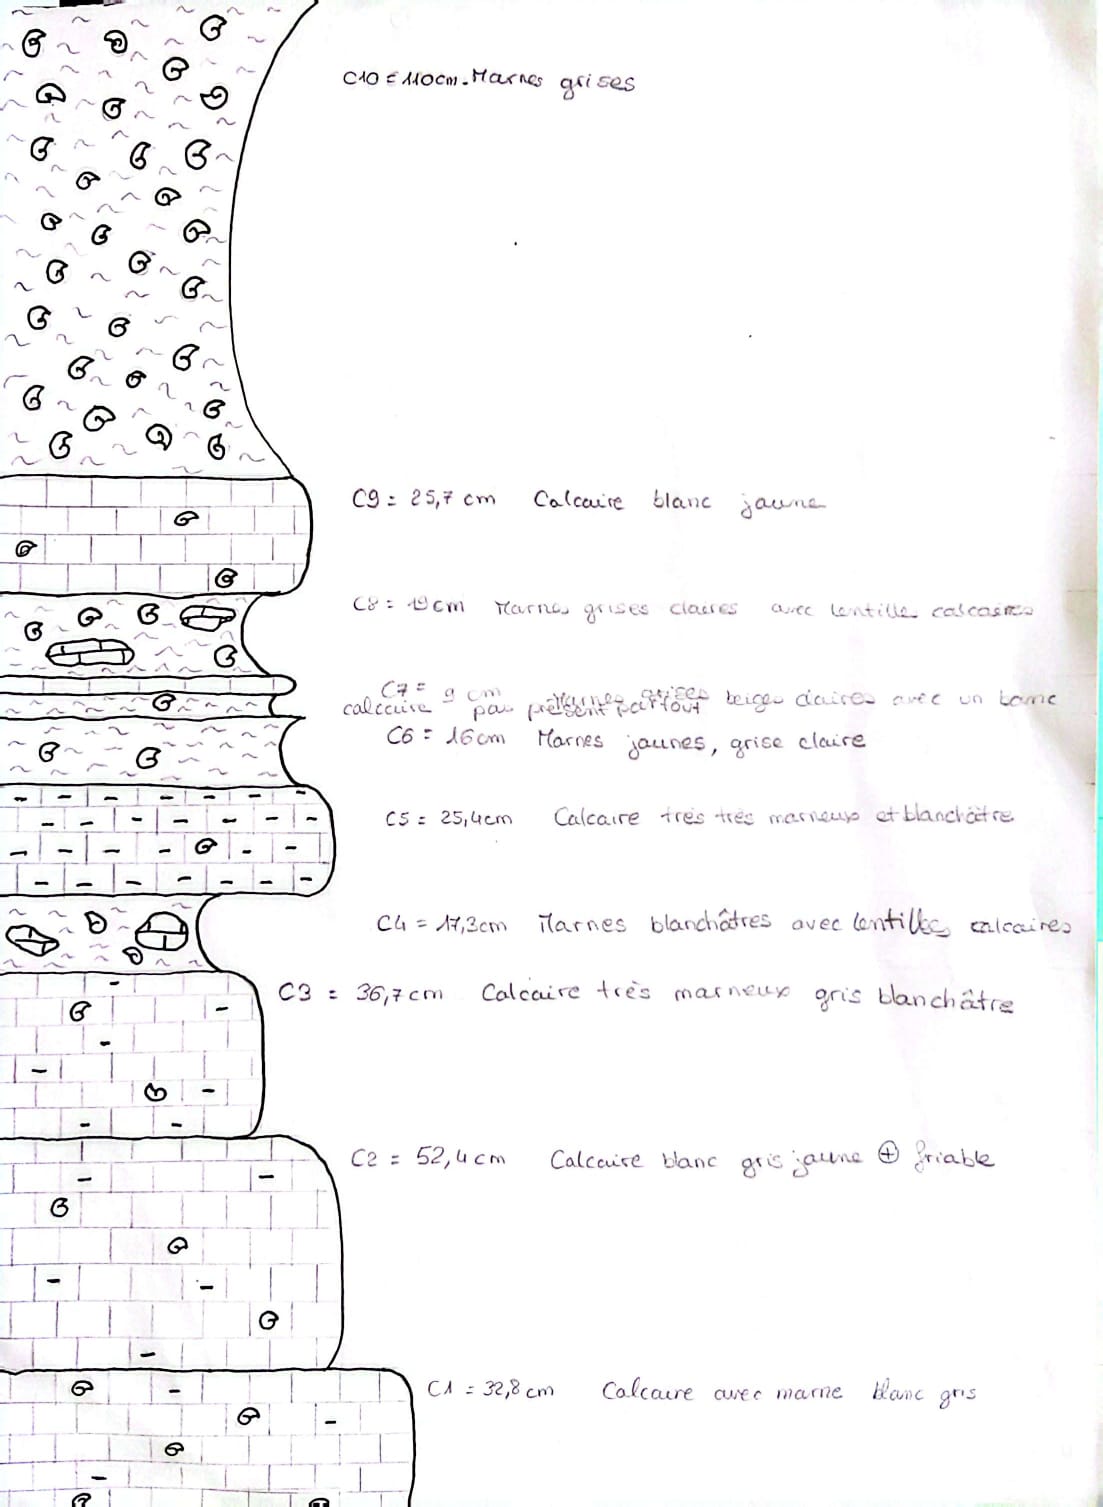 C10 = 110cm. Marnes grises
C9 = 25,7 cm Calcaire blanc jaune
C8 = 19cm Marnes grises claires avec lentille calcaires
C7 = 9 cm Marnes grises beiges claires avec un banc
calcaire pas présent partout
C6 = 16cm Marnes jaunes, grise claire
C5 = 25,4cm Calcaire très très marneux et blanchâtre
C4 = 17,3cm Marnes blanchâtres avec lentilles calcaires
C3 = 36,7cm Calcaire très marneux gris blanchâtre
C2 = 52,4cm Calcaire blanc gris jaune ⊕ friable
C1 = 32,8cm Calcaire avec marne blanc gris